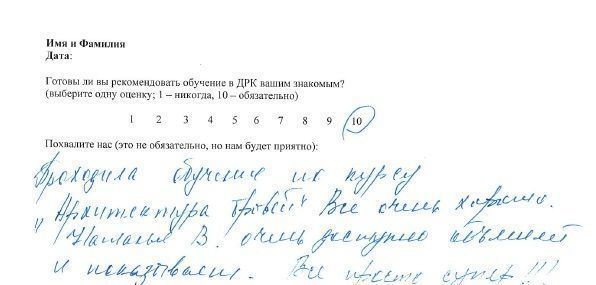 Имя и Фамилия
Дата:
Готовы ли вы рекомендовать обучение в ДРК вашим знакомым?
(выберите одну оценку; 1 – никогда, 10 – обязательно)
1 2 3 4 5 6 7 8 9 10
Похвалите нас (это не обязательно, но нам будет приятно):
Проходила обучение по курсу
"Архитектура бровей" Все очень хорошо.
Наталья В. очень доступно объясняет
и показывает. Все просто супер!!!